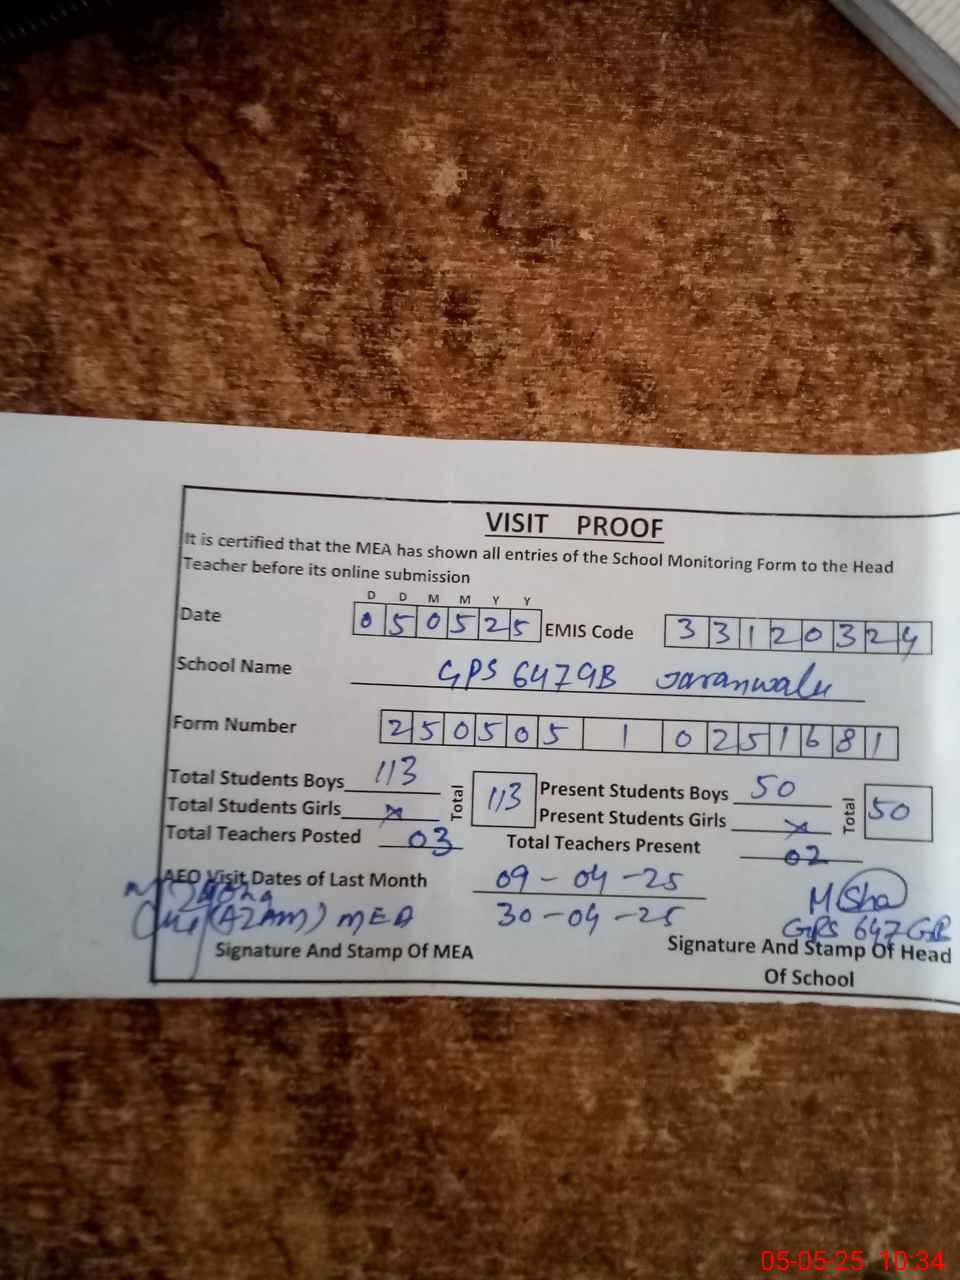 VISIT PROOF
It is certified that the MEA has shown all entries of the School Monitoring Form to the Head
Teacher before its online submission
D D M M Y Y
Date 0 5 0 5 2 5 EMIS Code 3 3 1 2 0 3 2 4
School Name GPS 647GB Jaranwala
Form Number 2 5 0 5 0 5 1 0 2 5 1 6 8 1
Total Students Boys 113 Total 113 Present Students Boys 50 Total 50
Total Students Girls x Present Students Girls x
Total Teachers Posted 03 Total Teachers Present 02
AEO Visit Dates of Last Month 09-04-25
30-04-25
(AZAM) MEA
M Sha
GPS 647 GB
Signature And Stamp Of MEA Signature And Stamp Of Head
Of School
05-05-25 10:34